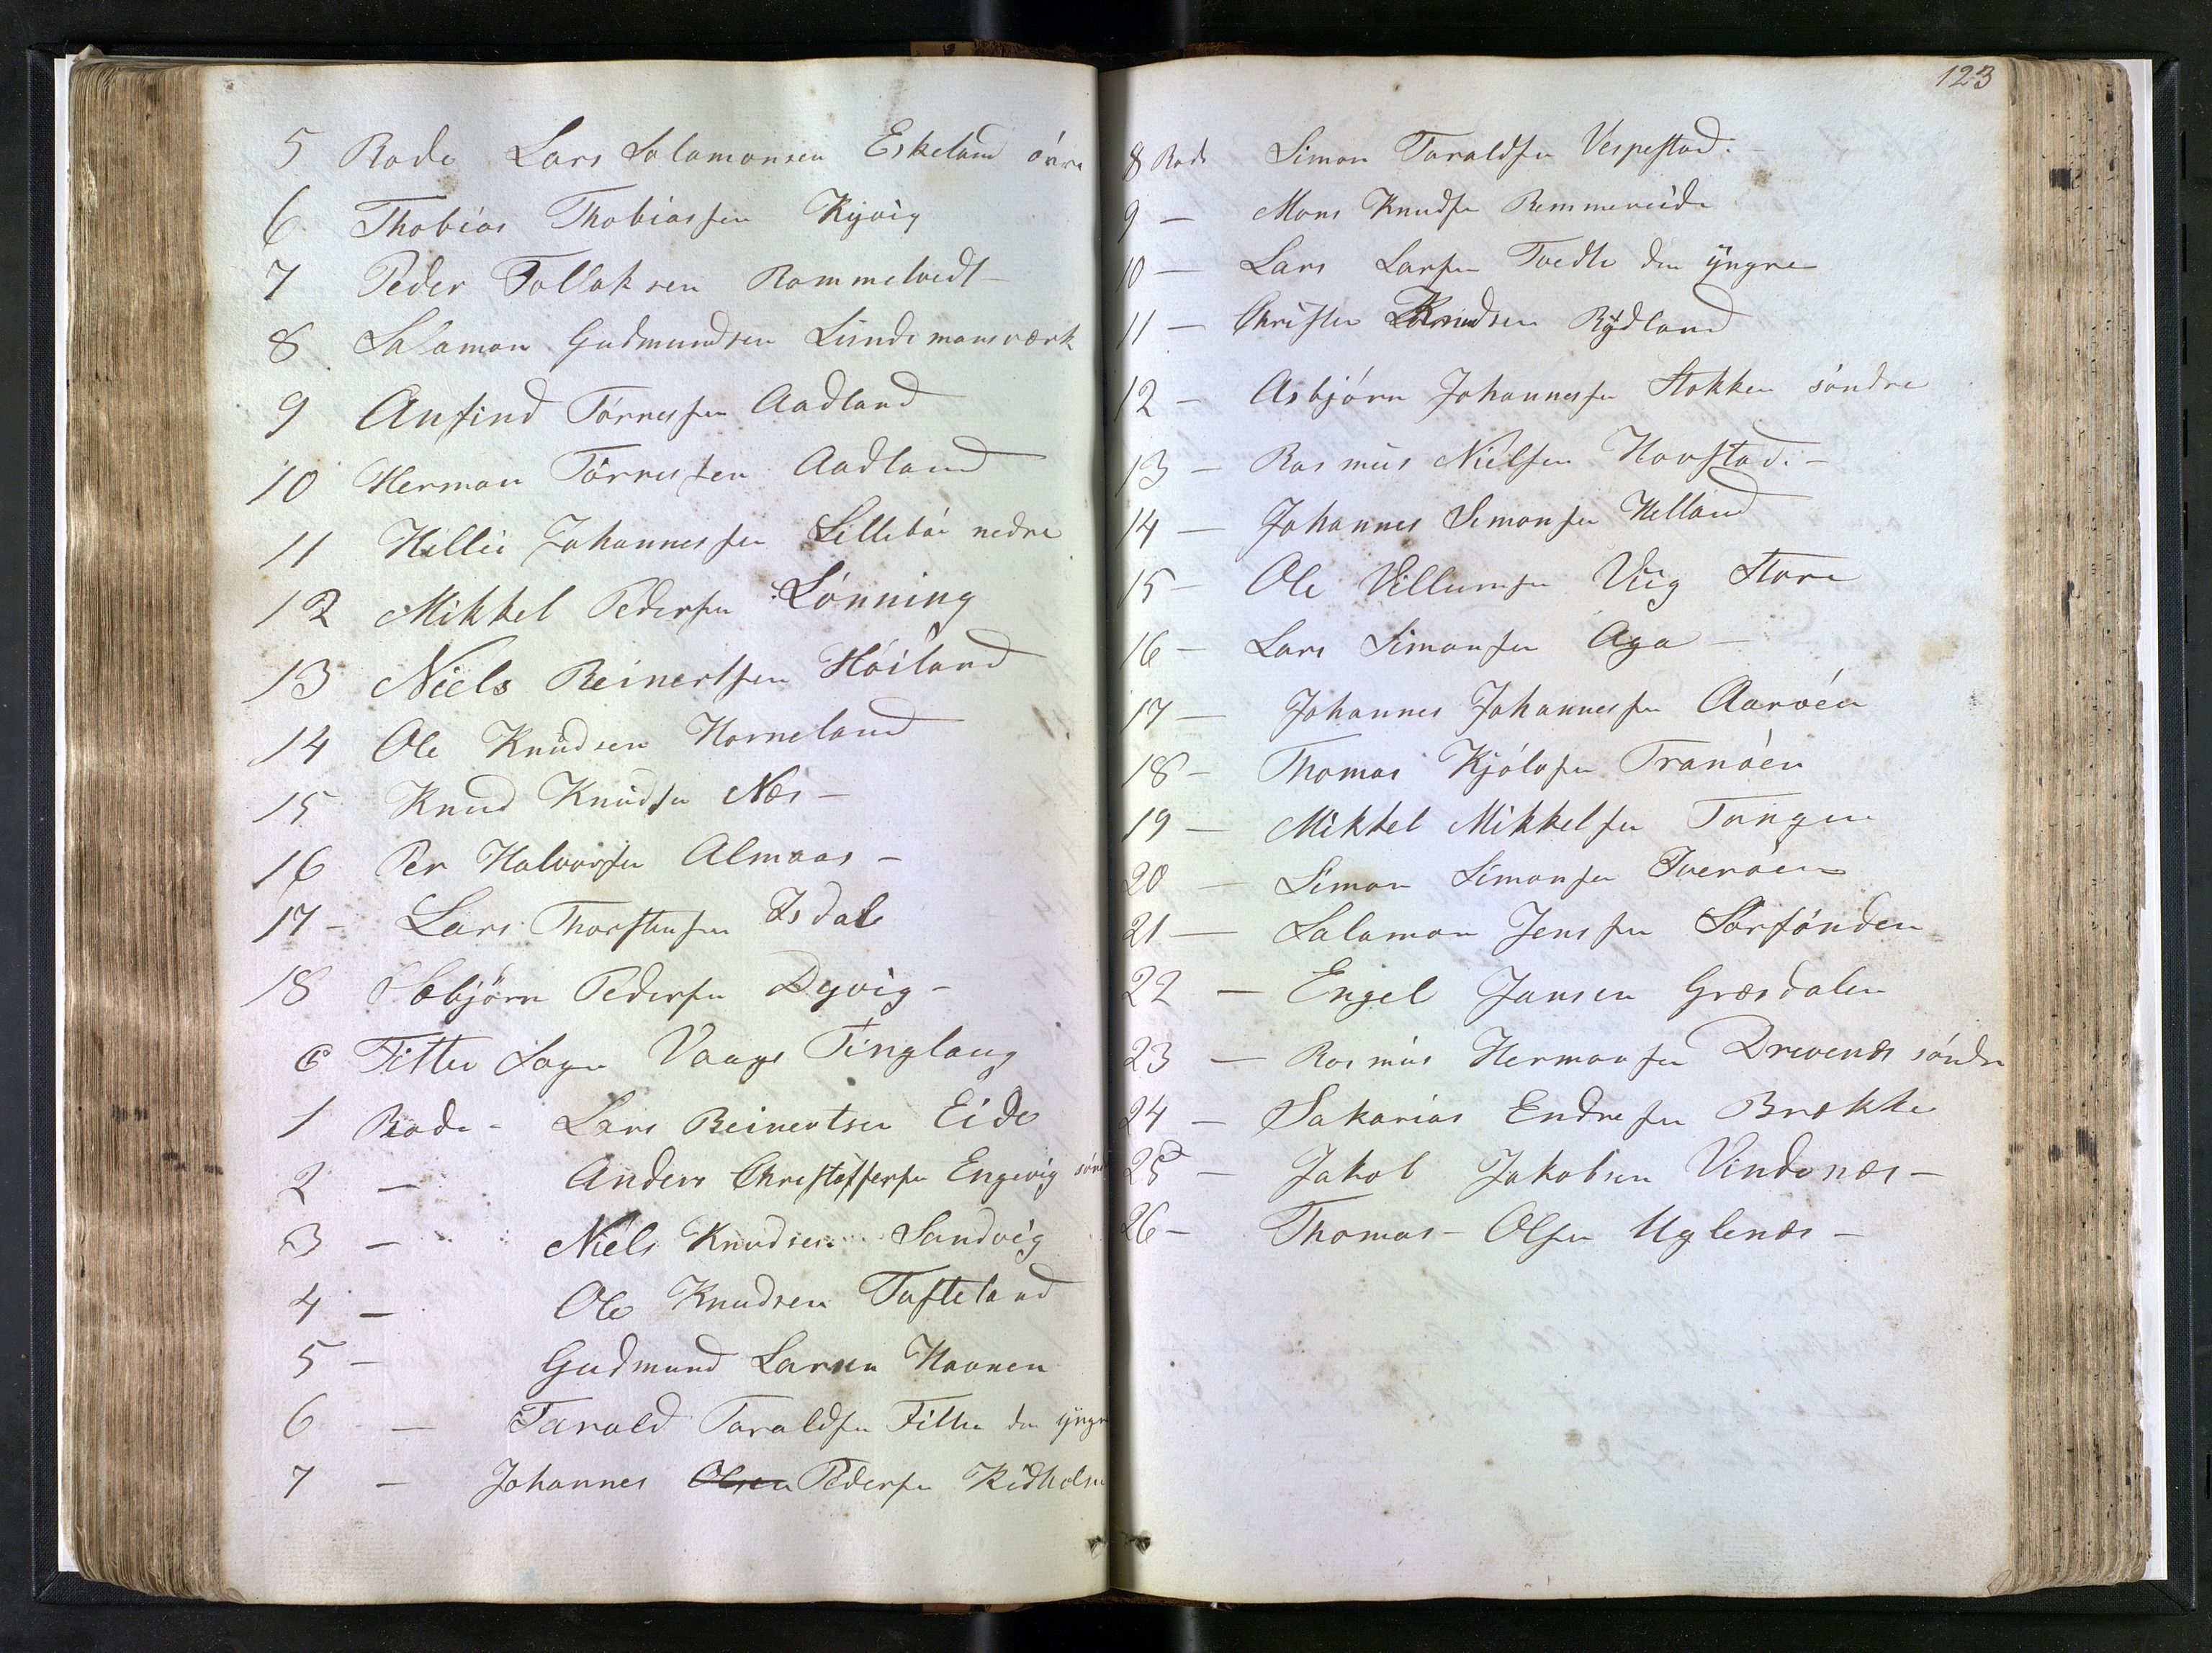 5 Rode Lars Salamonsen Eskeland óvre
6 Thobias Thobiassen Kyvig
7 Peder Tollaksen Rommetvedt -
8 Salamon Gudmundsen Lundemansværk
9 Anfind Tórressen Aadland
10 Herman Tórressen Aadland
11 Hellie Johannessen Lillebói nedre
12 Mikkel Pedersen Lónning
13 Niels Reinertsen Hóiland
14 Ole Knudsen Horneland
15 Knud Knudsen Næs -
16 Per Halvorsen Almaas -
17 - Lars Thorstensen Isdal
18 Asbjörn Pedersen Dyvig -
Fittie Sogn Vaags Tinglaug
1 Rode - Lars Reinertsen Eide
2 - Anders Christoffersen Engevig
3 - Niels Knudsen Sandvig
4 - Ole Knudsen Tufteland
5 - Gudmund Larsen Havnen
6 - Tarald Taraldsen Fittie den yngre
7 - Johannes Olsen Pedersen Kidholsm
123
8 Rode Simon Taraldsen Vespestad. -
9 - Mons Knudsen Remmereide
10 - Lars Larsen Tvedte den yngre
11 - Christen Knudsen Rydland
12 - Asbjórn Johannessen Stokken sóndre
13 - Rasmus Nielsen Hovstad. -
14 - Johannes Simonsen Helland
15 - Ole Villumsen Viig Store
16 - Lars Simonsen Aga -
17 - Johannes Johannessen Aaróen
18 - Thomas Kjólvsen Tranóen
19 - Mikkel Mikkelsen Tangen
20 - Simon Simonsen Iveróen
21 - Salamon Jenssen Sórfónden
22 - Engel Jansen Græsdalen
23 - Rasmus Hermansen Drevenæs sóndre
24 - Sakarias Endresen Brække
25 - Jakob Jakobsen Vindenæs -
26 - Thomas - Olsen Uglenæs -